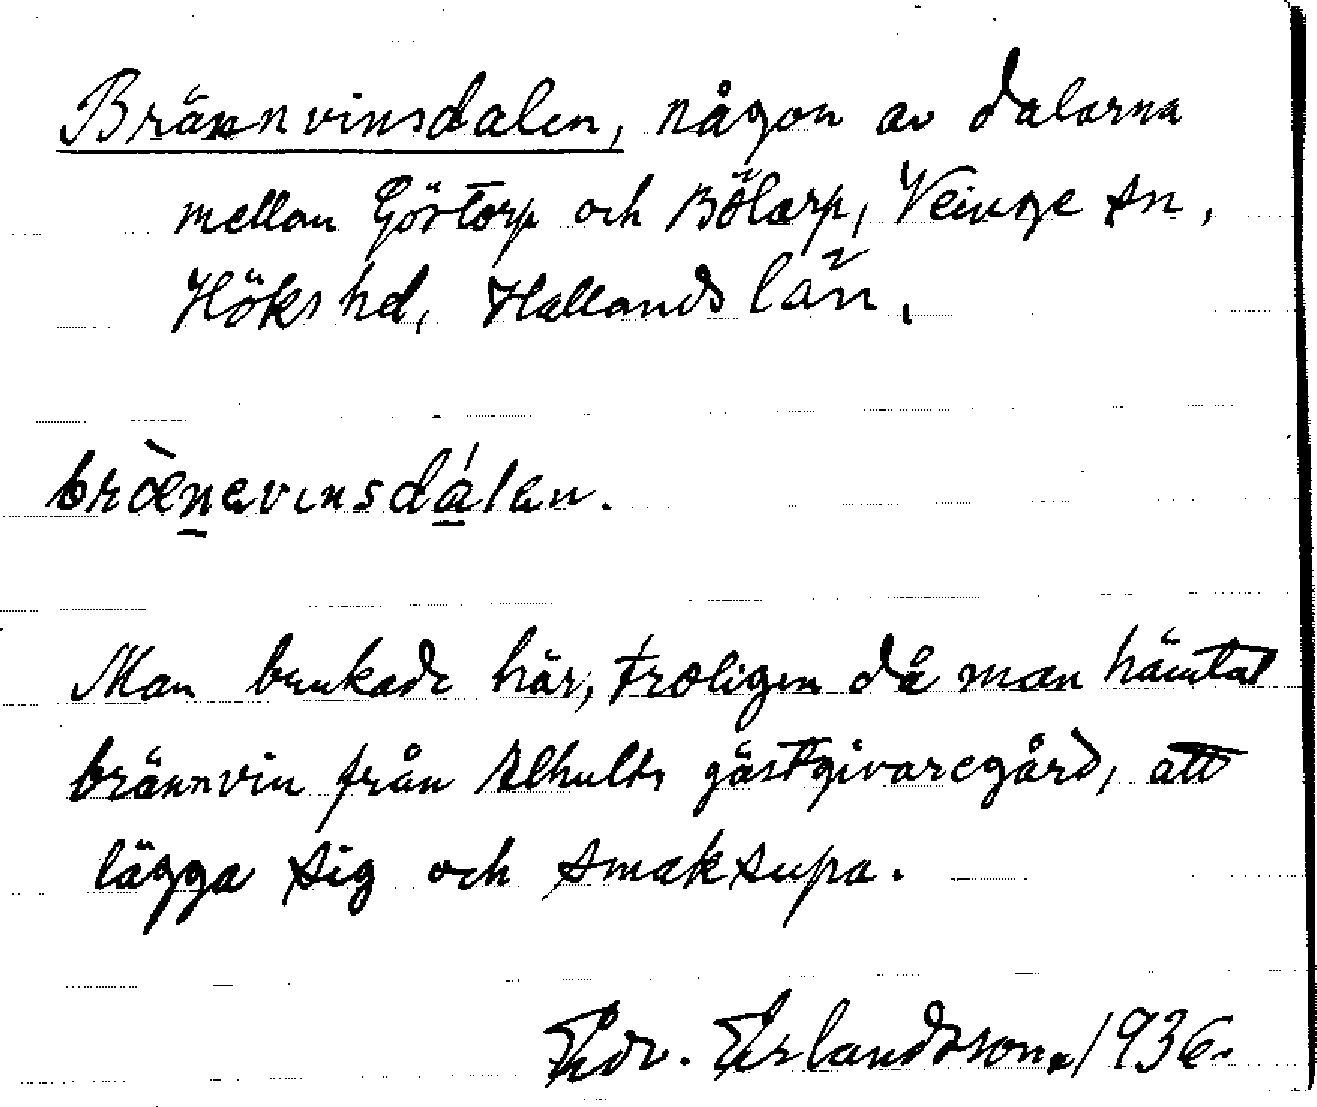 Brännvinsdalen, någon av dalarna
mellan Göstorp och Bölarp, Veinge sn,
Höks hd, Hallands län.
bræ̀nevinsdálen.
Man brukade här, troligen då man hämtat
brännvin från Ahults gästgivaregård, att
lägga sig och smaksupa.
Edv. Erlandsson. 1936.